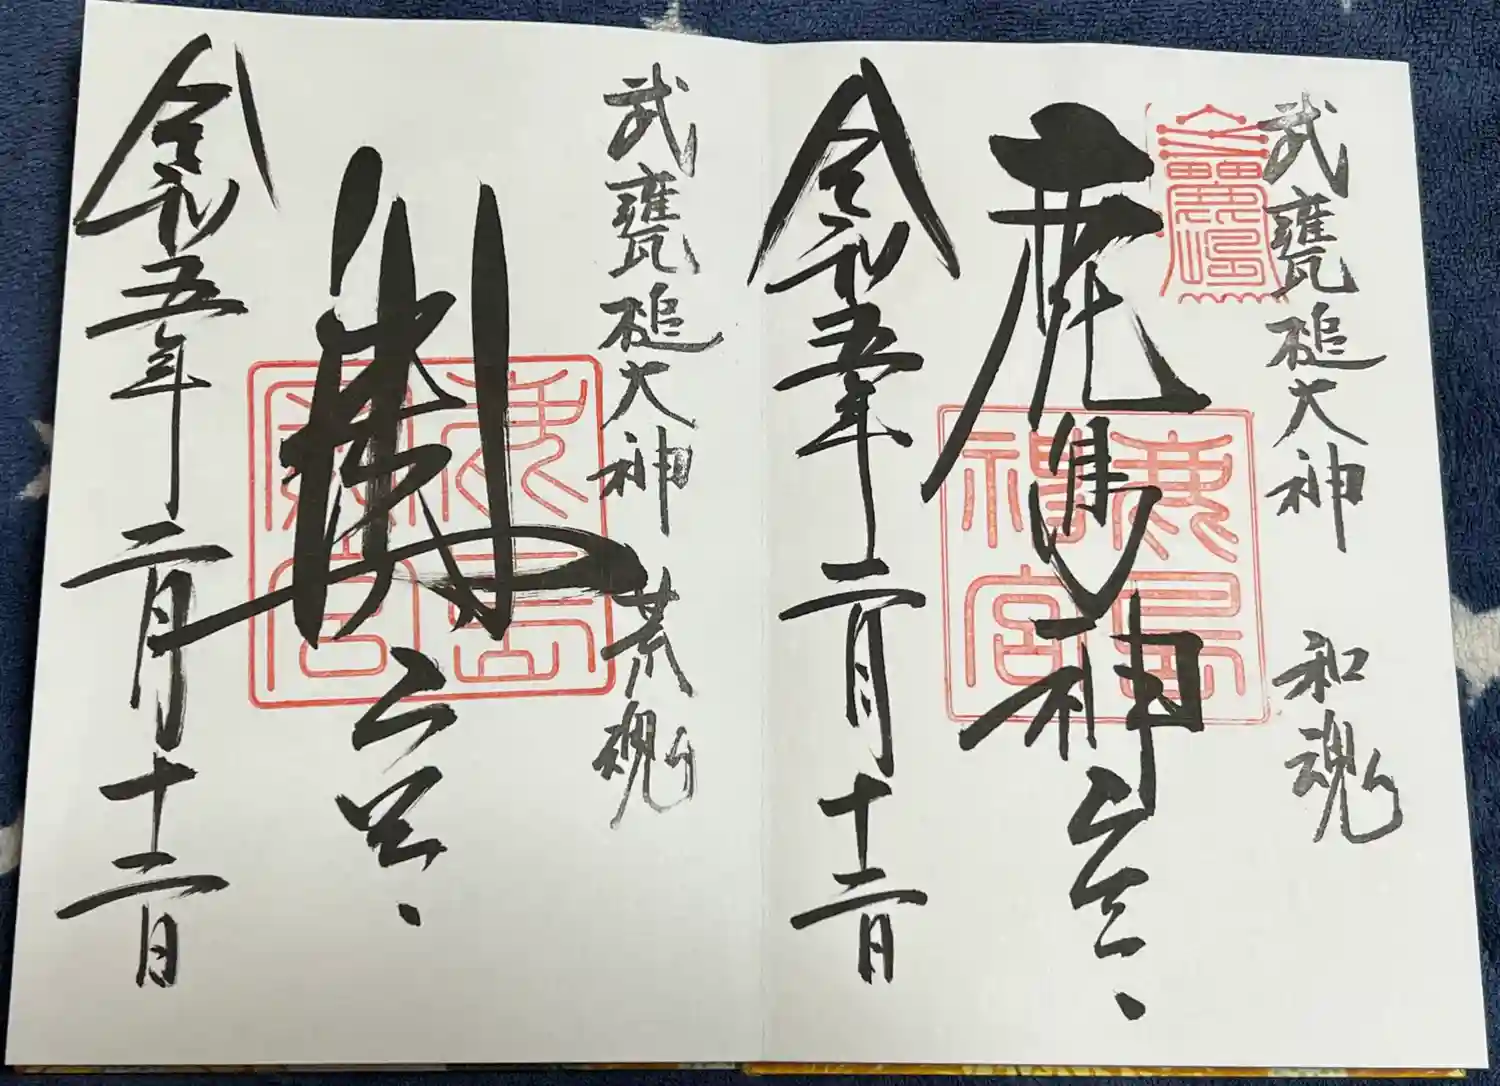 武甕槌大神 和魂
鹿島神宮
鹿島神宮
令和五年二月十二日
武甕槌大神 荒魂
奥宮
鹿島奥宮
令和五年二月十二日